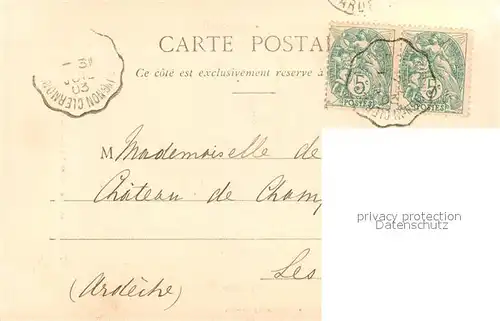 CARTE POSTA
Ce côté est exclusivement réservé à
31
JUIL
03
5c 5c
POSTES POSTES
M Mademoiselle de
Château de Champ
Les
(Ardèche)
privacy protection
Datenschutz